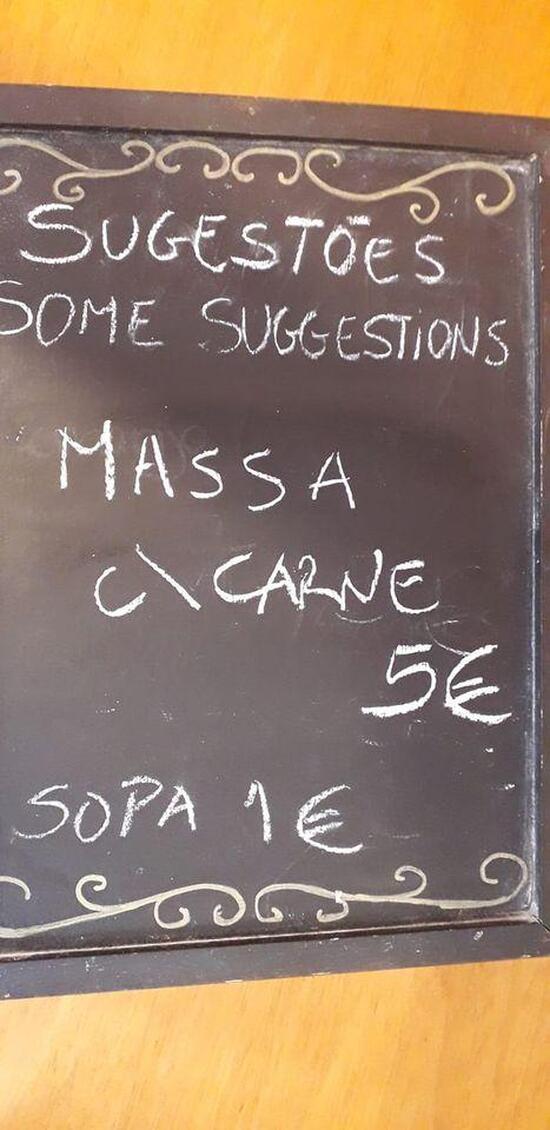 SUGESTÕES
SOME SUGGESTIONS
MASSA
C\CARNE
5€
SOPA 1€